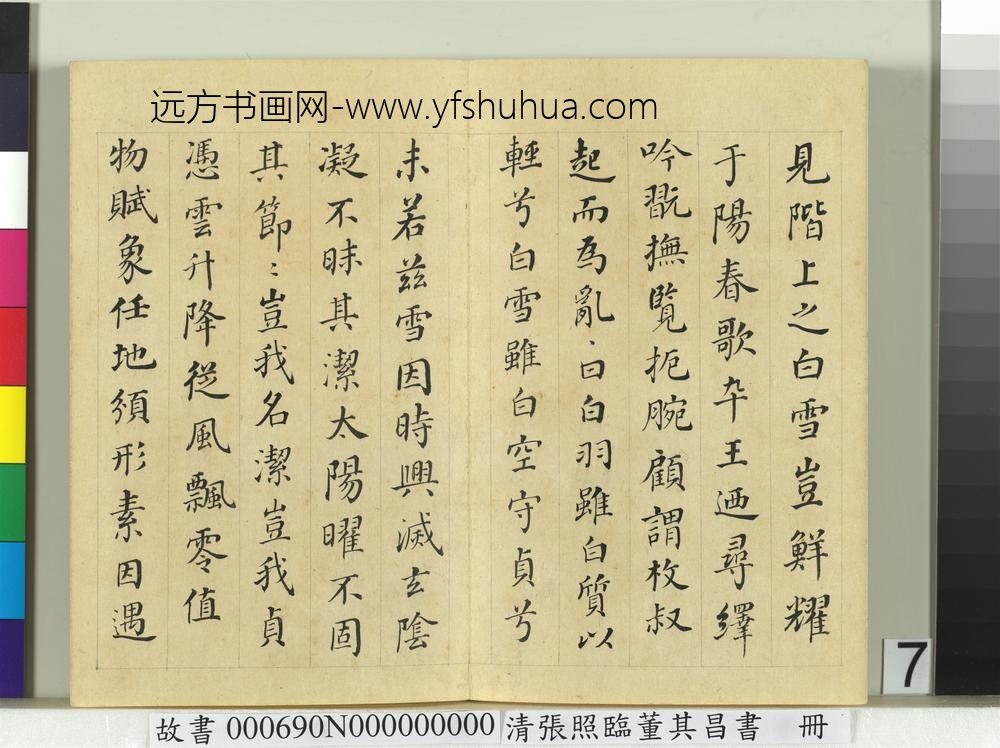 远方书画网-www.yfshuhua.com
見階上之白雪豈鮮耀
于陽春歌卒王迺尋繹
吟翫撫覧扼腕顧謂枚叔
起而為亂、曰白羽雖白質以
輕兮白雪雖白空守貞兮
未若茲雪因時興滅玄陰
凝不昧其潔太陽曜不固
其節〻豈我名潔豈我貞
憑雲升降從風飄零值
物賦象任地頒形素因遇
7
故書 000690N000000000 清張照臨董其昌書 冊